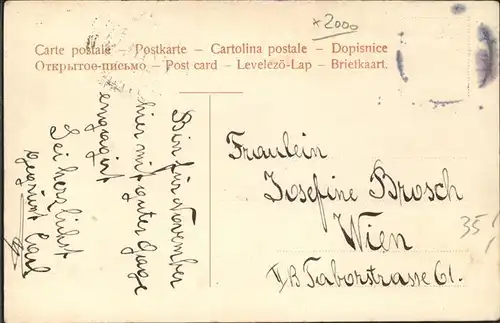 x 2000
Carte postale – Postkarte – Cartolina postale – Dopisnice
Открытое-письмо – Post card – Levelező-Lap – Brietkaart.
Bin für November
hier mit guter Gage
engagirt
Sei herzlichst
gegrüsst Carl
Fraulein
Josefine Brosch
Wien
II/B Taborstrasse 61.
35